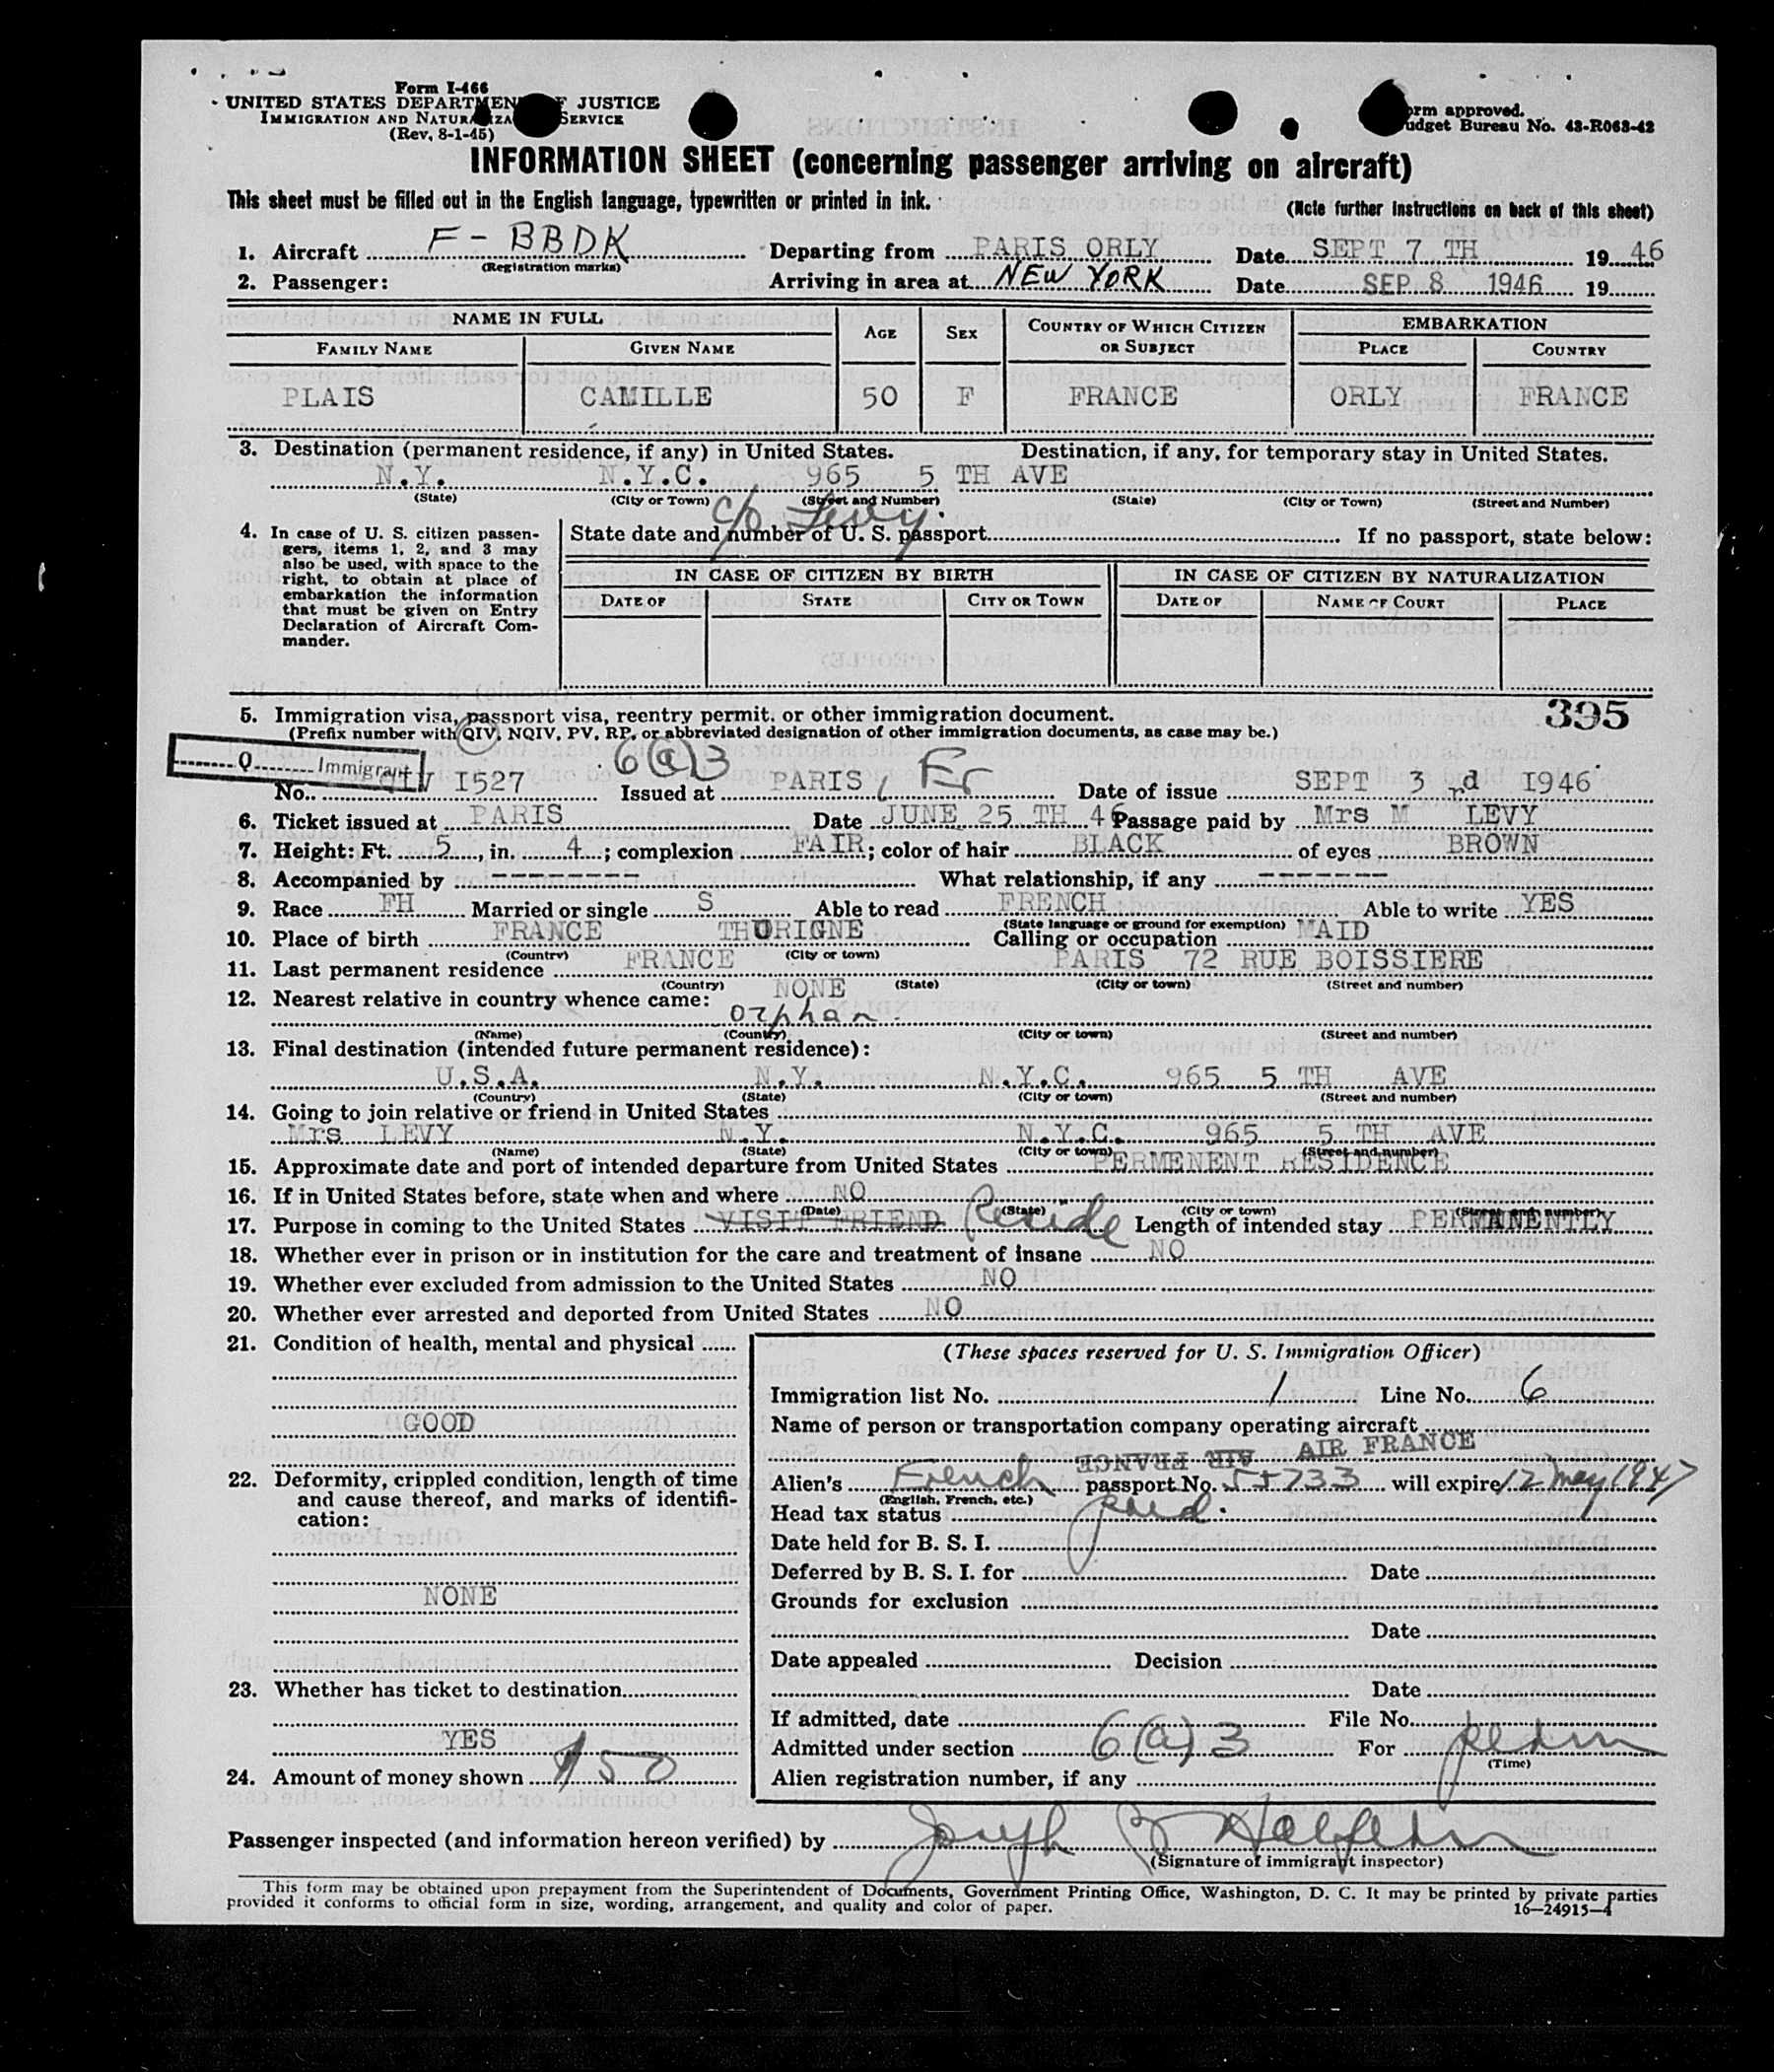 Form I-466
UNITED STATES DEPARTMENT OF JUSTICE
IMMIGRATION AND NATURALIZATION SERVICE
(Rev. 8-1-45)
Form approved.
Budget Bureau No. 43-R063-42
INFORMATION SHEET (concerning passenger arriving on aircraft)
This sheet must be filled out in the English language, typewritten or printed in ink.
(Note further instructions on back of this sheet)
1. Aircraft F-BBDK Departing from PARIS ORLY Date SEPT 7 TH 1946
(Registration marks)
2. Passenger: Arriving in area at NEW YORK Date SEP 8 1946 19
NAME IN FULL AGE SEX COUNTRY OF WHICH CITIZEN OR SUBJECT EMBARKATION
FAMILY NAME GIVEN NAME PLACE COUNTRY
PLAIS CAMILLE 50 F FRANCE ORLY FRANCE
3. Destination (permanent residence, if any) in United States. Destination, if any, for temporary stay in United States.
N.Y. N.Y.C. 965 5 TH AVE
(State) (City or Town) (Street and Number) (State) (City or Town) (Street and Number)
c/o Levy.
4. In case of U. S. citizen passen-
gers, items 1, 2, and 3 may
also be used, with space to the
right, to obtain at place of
embarkation the information
that must be given on Entry
Declaration of Aircraft Com-
mander.
State date and number of U. S. passport If no passport, state below:
IN CASE OF CITIZEN BY BIRTH IN CASE OF CITIZEN BY NATURALIZATION
DATE OF STATE CITY OR TOWN DATE OF NAME OF COURT PLACE
395
5. Immigration visa, passport visa, reentry permit, or other immigration document.
(Prefix number with QIV, NQIV, PV, RP, or abbreviated designation of other immigration documents, as case may be.)
Q Immigrant
6(a)3
No. QIV I527 Issued at PARIS, Fr Date of issue SEPT 3 rd I946
6. Ticket issued at PARIS Date JUNE 25 TH 46 Passage paid by Mrs M LEVY
7. Height: Ft. 5, in. 4; complexion FAIR; color of hair BLACK of eyes BROWN
8. Accompanied by -------- What relationship, if any -------
9. Race FH Married or single S Able to read FRENCH Able to write YES
(State language or ground for exemption)
10. Place of birth FRANCE THORIGNE Calling or occupation MAID
(Country) (City or town)
11. Last permanent residence FRANCE PARIS 72 RUE BOISSIERE
(Country) (State) (City or town) (Street and number)
12. Nearest relative in country whence came: NONE
orphan
(Name) (Country) (City or town) (Street and number)
13. Final destination (intended future permanent residence):
U.S.A. N.Y. N.Y.C. 965 5 TH AVE
(Country) (State) (City or town) (Street and number)
14. Going to join relative or friend in United States
Mrs LEVY N.Y. N.Y.C. 965 5 TH AVE
(Name) (State) (City or town) (Street and number)
15. Approximate date and port of intended departure from United States PERMENENT RESIDENCE
16. If in United States before, state when and where NO
(Date) (State) (City or town) (Street and number)
17. Purpose in coming to the United States VISIT FRIEND Reside Length of intended stay PERMANENTLY
18. Whether ever in prison or in institution for the care and treatment of insane NO
19. Whether ever excluded from admission to the United States NO
20. Whether ever arrested and deported from United States NO
21. Condition of health, mental and physical
GOOD
22. Deformity, crippled condition, length of time
and cause thereof, and marks of identifi-
cation:
NONE
23. Whether has ticket to destination
YES
24. Amount of money shown $50
(These spaces reserved for U. S. Immigration Officer)
Immigration list No. 1 Line No. 6
Name of person or transportation company operating aircraft
AIR FRANCE AIR FRANCE
Alien's French passport No. 55733 will expire 12 May 1947
(English, French, etc.)
Head tax status paid.
Date held for B. S. I.
Deferred by B. S. I. for Date
Grounds for exclusion
Date
Date appealed Decision
Date
If admitted, date File No.
Admitted under section 6(a)3 For perm
(Time)
Alien registration number, if any
Passenger inspected (and information hereon verified) by Joseph
(Signature of immigrant inspector)
This form may be obtained upon prepayment from the Superintendent of Documents, Government Printing Office, Washington, D. C. It may be printed by private parties
provided it conforms to official form in size, wording, arrangement, and quality and color of paper.
16—24915-4